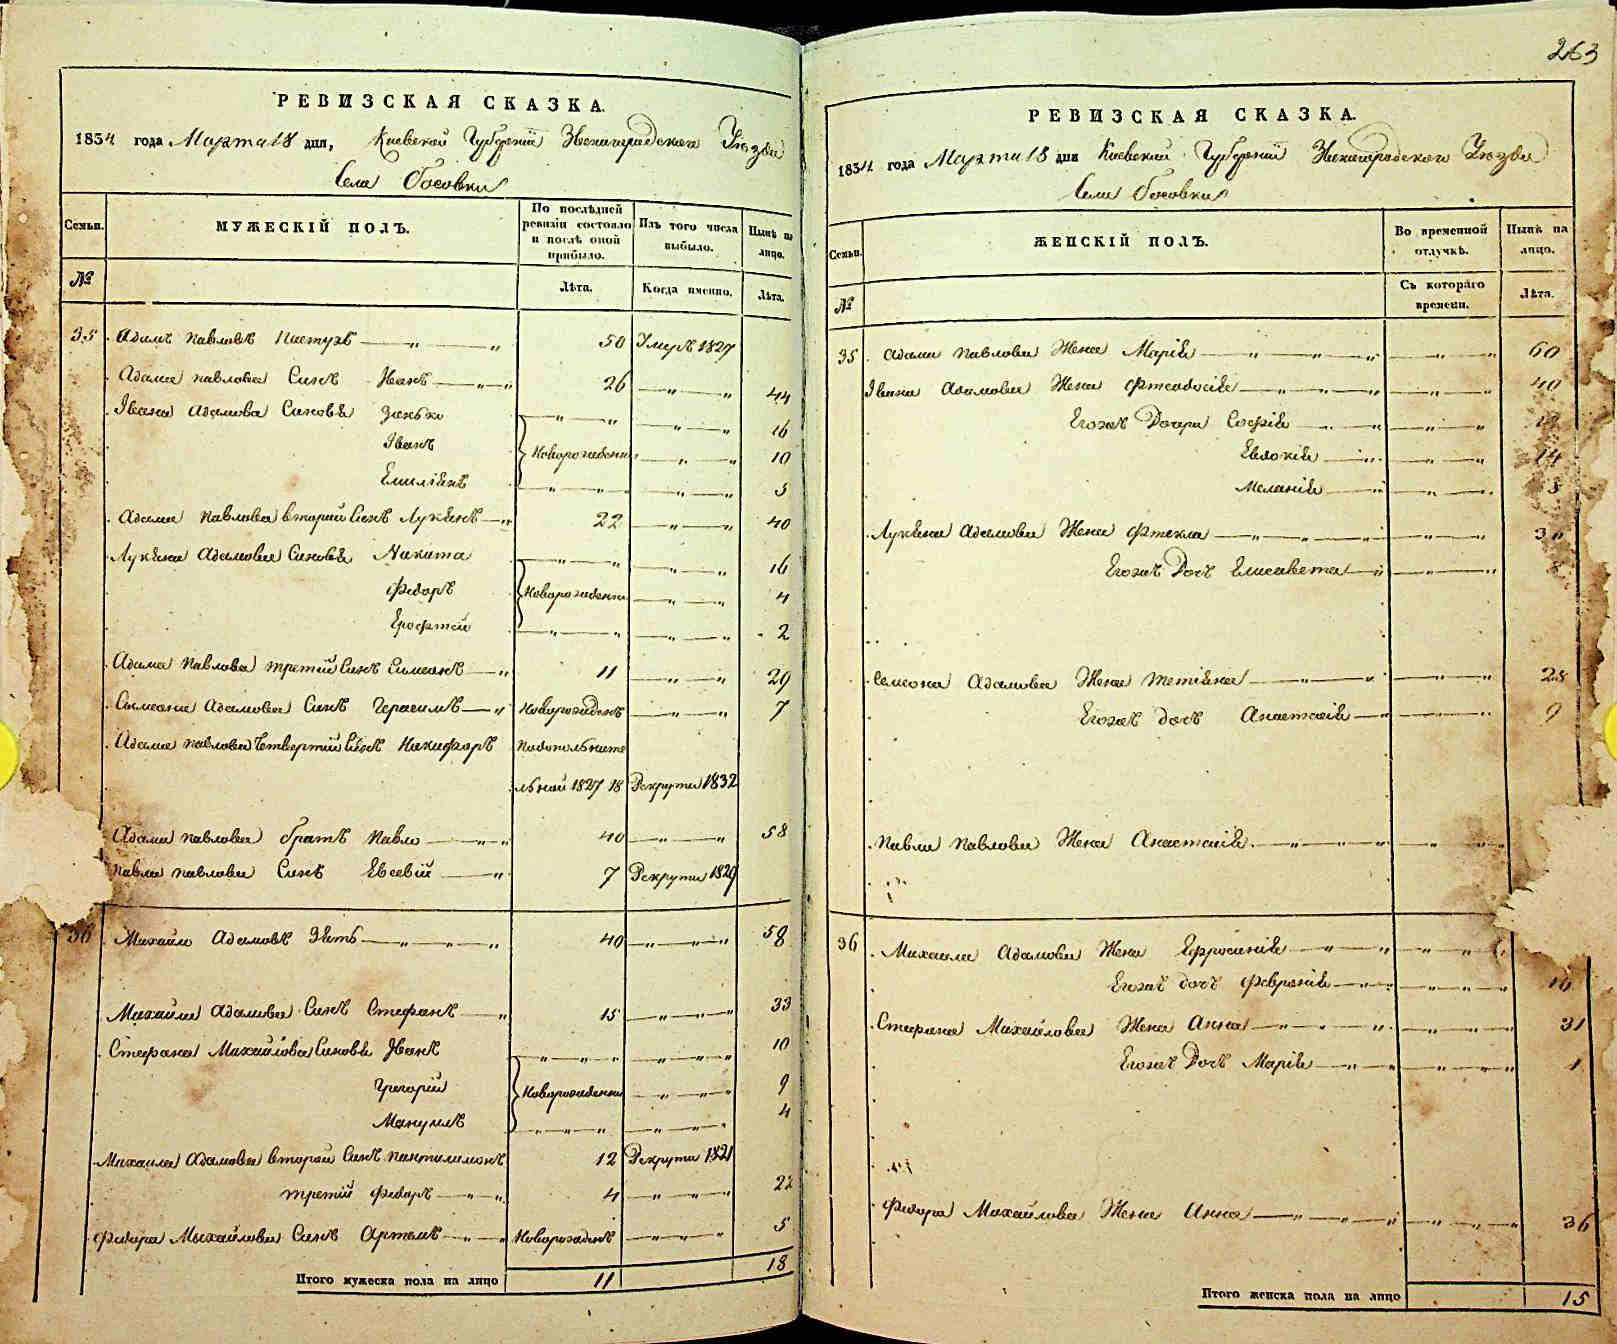 263
РЕВИЗСКАЯ СКАЗКА.
1834 года Марта 18 дня, Киевской Губернiи Звенигородского Уѣзда
Села Босовки
Семьи.
МУЖЕСКIЙ ПОЛЪ.
По послѣдней ревизiи состояло и послѣ оной прибыло.
Изъ того числа выбыло.
Нынѣ на лицо.
№
Лѣта.
Когда именно.
Лѣта.
35 Адамъ Павловъ Пастухъ 50 Умеръ 1827
Адама Павлова Синъ Иванъ 26 44
Iвана Адамова Синовъя Занько 16
Iванъ Новорожденни 10
Емилiянъ 3
Адама Павлова вторий Синъ Лукянъ 22 40
Лукяна Адамова Синовъя Никита 16
Федоръ Новорожденни 4
Ерофтей 2
Адама Павлова третiй Синъ Симеонъ 11 29
Симеона Адамова Синъ Герасимъ Новорожденъ 7
Адама Павлова Четвертий Синъ Никифоръ
1827 18 Рекрути 1832
Адама Павлова братъ Павло 40 58
Павла Павлова Синъ Евсевiй 7 Рекрути 1829
36 Михайло Адамовъ Зять 40 58
Михайла Адамова Синъ Стефанъ 15 33
Стефана Михайлова Синовъя Иванъ 10
Григорiй Новорожденни 9
Мануилъ 4
Михаила Адамова вторий Синъ Пантилимонъ 12 Рекрути 1821
третiй Федоръ 4 22
Федора Михайлова Синъ Артемъ Новорожденъ 5
Итого мужеска пола на лицо 11 18
РЕВИЗСКАЯ СКАЗКА.
1834 года Марта 18 дня Киевской Губернiи Звенигородского Уѣзда
Села Босовки
Семьи.
ЖЕНСКIЙ ПОЛЪ.
Во временной отлучкѣ.
Нынѣ на лицо.
№
Съ котораго времени.
Лѣта.
35 Адама Павлова Жена Марiя 60
Iвана Адамова Жена Фтеодосiя 40
Егожъ Дочери Софiя
Евдокiя 14
Меланiя 3
Лукяна Адамова Жена Фтекла
Егожъ Дочъ Елисавета
Семиона Адамова Жена Тетiяна 28
Егожъ дочъ Анастасiя 9
Павла Павлова Жена Анастасiя
36 Михаила Адамова Жена Ефросинiя
Егожъ дочъ Февронiя 16
Стефана Михайлова Жена Анна 31
Егожъ Дочъ Марiя 1
Федора Михайлова Жена Анна 36
Итого женска пола на лицо 15